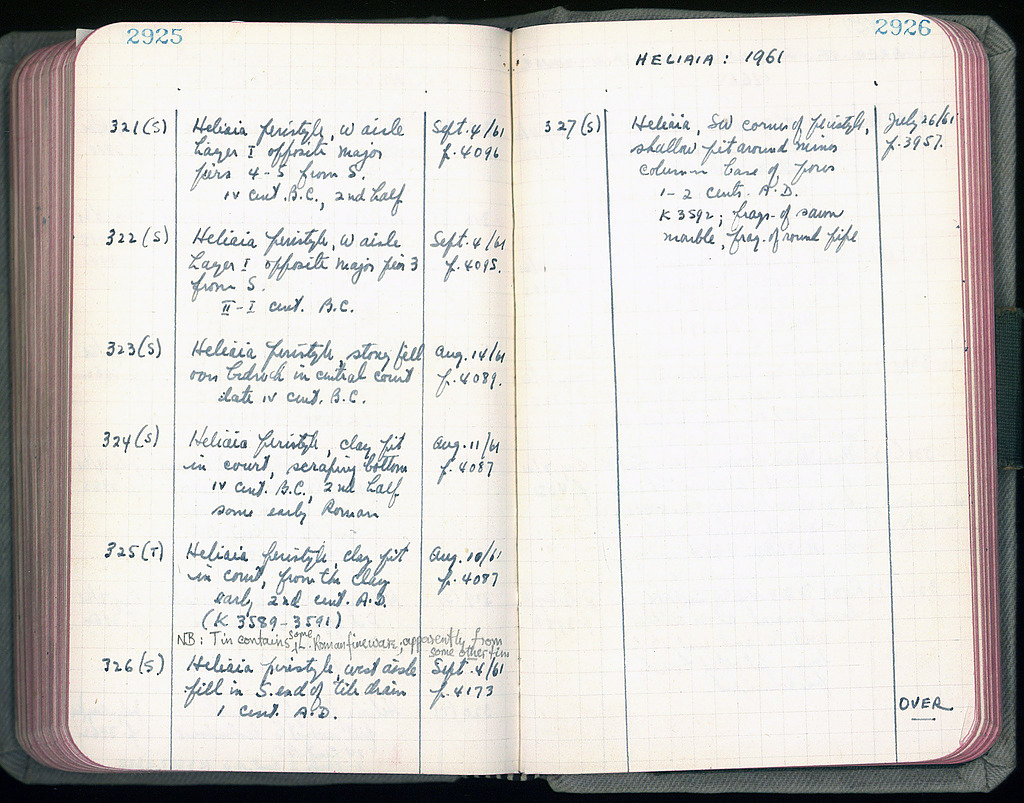 2925
321(S) Heliaia peristyle, W aisle Sept. 4/61
Layer I opposite major p. 4096
piers 4-5 from S.
IV cent. B.C., 2nd half
322(S) Heliaia peristyle, W aisle Sept. 4/61
Layer I opposite major pier 3 p. 4095.
from S.
II-I cent. B.C.
323(S) Heliaia peristyle, stony fill Aug. 14/61
over bedrock in central court p. 4089.
date IV cent. B.C.
324(S) Heliaia peristyle, clay pit Aug. 11/61
in court, scraping bottom p. 4087
IV cent. B.C., 2nd half
some early Roman
325(T) Heliaia peristyle, clay pit Aug. 10/61
in court, from the clay p. 4087
early 2nd cent. A.D.
(K 3589-3591)
NB: Tin contains some L. Roman fineware, apparently from
some other tin
326(S) Heliaia peristyle, west aisle Sept. 4/61
fill in S. end of tile drain p. 4173
I cent. A.D.
2926
HELIAIA: 1961
327(S) Heliaia, SW corner of peristyle, July 26/61
shallow pit around minor p. 3957.
column base of poros
1-2 cents. A.D.
K 3592; frags. of sawn
marble, frag. of round pipe
OVER